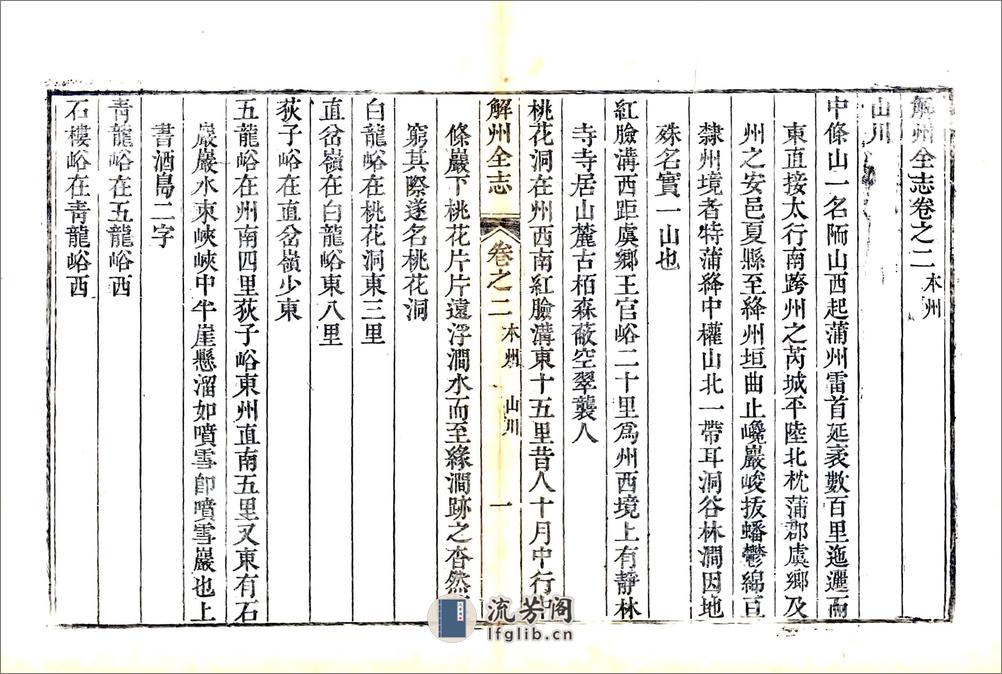 解州全志卷之二 本州
山川
中條山一名陑山西起蒲州雷首延袤數百里迤邐而
東直接太行南跨州之芮城平陸北枕蒲郡虞鄉及
州之安邑夏縣至絳州垣曲止巉巖峻拔蟠鬱綿亘
隸州境者特蒲絳中權山北一帶耳洞谷林澗因地
殊名實一山也
紅臉溝西距虞鄉王官峪二十里爲州西境上有靜林
寺寺居山麓古柏森蔽空翠襲人
桃花洞在州西南紅臉溝東十五里昔人十月中行中
解州全志 卷之二 本州 山川 一
條巖下桃花片片遠浮澗水而至緣澗跡之杳然
窮其際遂名桃花洞
白龍峪在桃花洞東三里
直岔嶺在白龍峪東八里
荻子峪在直岔嶺少東
五龍峪在州南四里荻子峪東州直南五里又東有石
巖巖水東峽峽中半崖懸溜如噴雪卽噴雪巖也上
書酒島二字
靑龍峪在五龍峪西
石樓峪在靑龍峪西
流芳阁
lfglib.cn